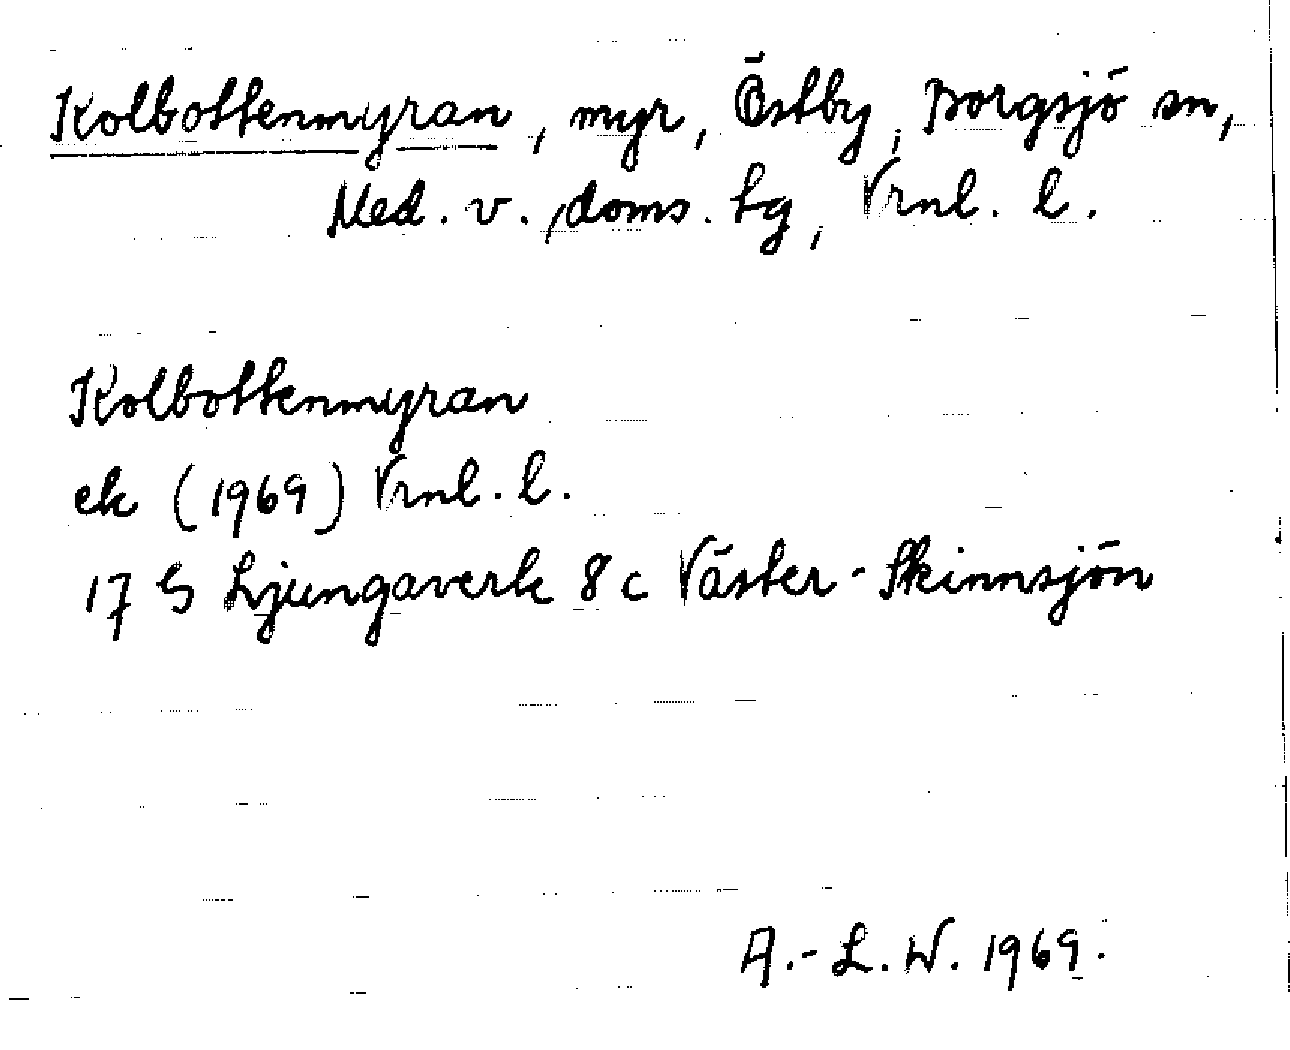 Kolbottenmyran, myr, Östby, Borgsjö sn,
Med. v. doms. hg, Vrnl. l.
Kolbottenmyran
ek (1969) Vrnl. l.
17 G Ljungaverk 8 c Väster-Skinnsjön
A.-L. W. 1969.